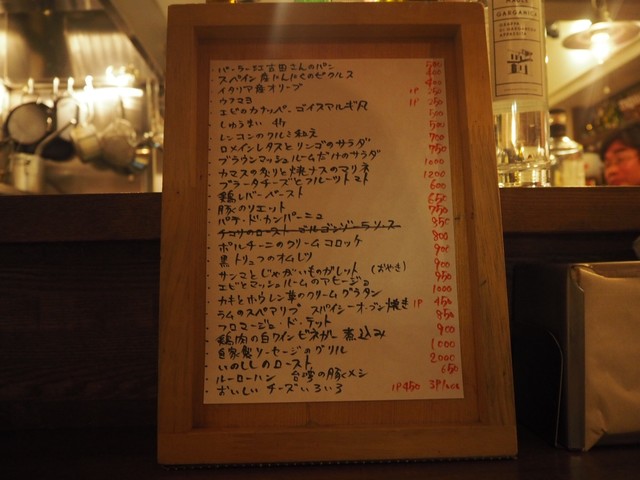 GARGANICA
・パーラー江古田さんのパン 500
・スペイン産にんにくのピクルス 400
・イタリア産オリーブ 400
・ウフマヨ 1P 250
・エビのカナッペ 1P 250
・しゅうまい 4ケ
・レンコンのクルミ和え 500
・ロメインレタスとリンゴのサラダ 700
・ブラウンマッシュルームだけのサラダ 750
・カマスの炙りと焼ナスのマリネ 1000
・ブラータチーズとフルーツトマト 1200
・鶏レバーペースト 600
・豚のリエット 650
・パテ・ド・カンパーニュ 750
・ロースト ゴルゴンゾーラソース 850
・ポルチーニのクリームコロッケ 800
・黒トリュフのオムレツ 900
・サンマとじゃがいものガレット (おやき) 900
・エビとマッシュルームのアヒージョ 950
・カキとホウレン草のクリームグラタン 1000
・ラムのスペアリブ スパイシーオーブン焼き 1P 450
・フロマージュ・ド・テット 850
・鶏肉の白ワインビネガー煮込み 900
・自家製ソーセージのグリル 1000
・いのししのロースト 2000
・ルーローハン 台湾の豚メシ 650
・おいしいチーズいろいろ 1P450 3P